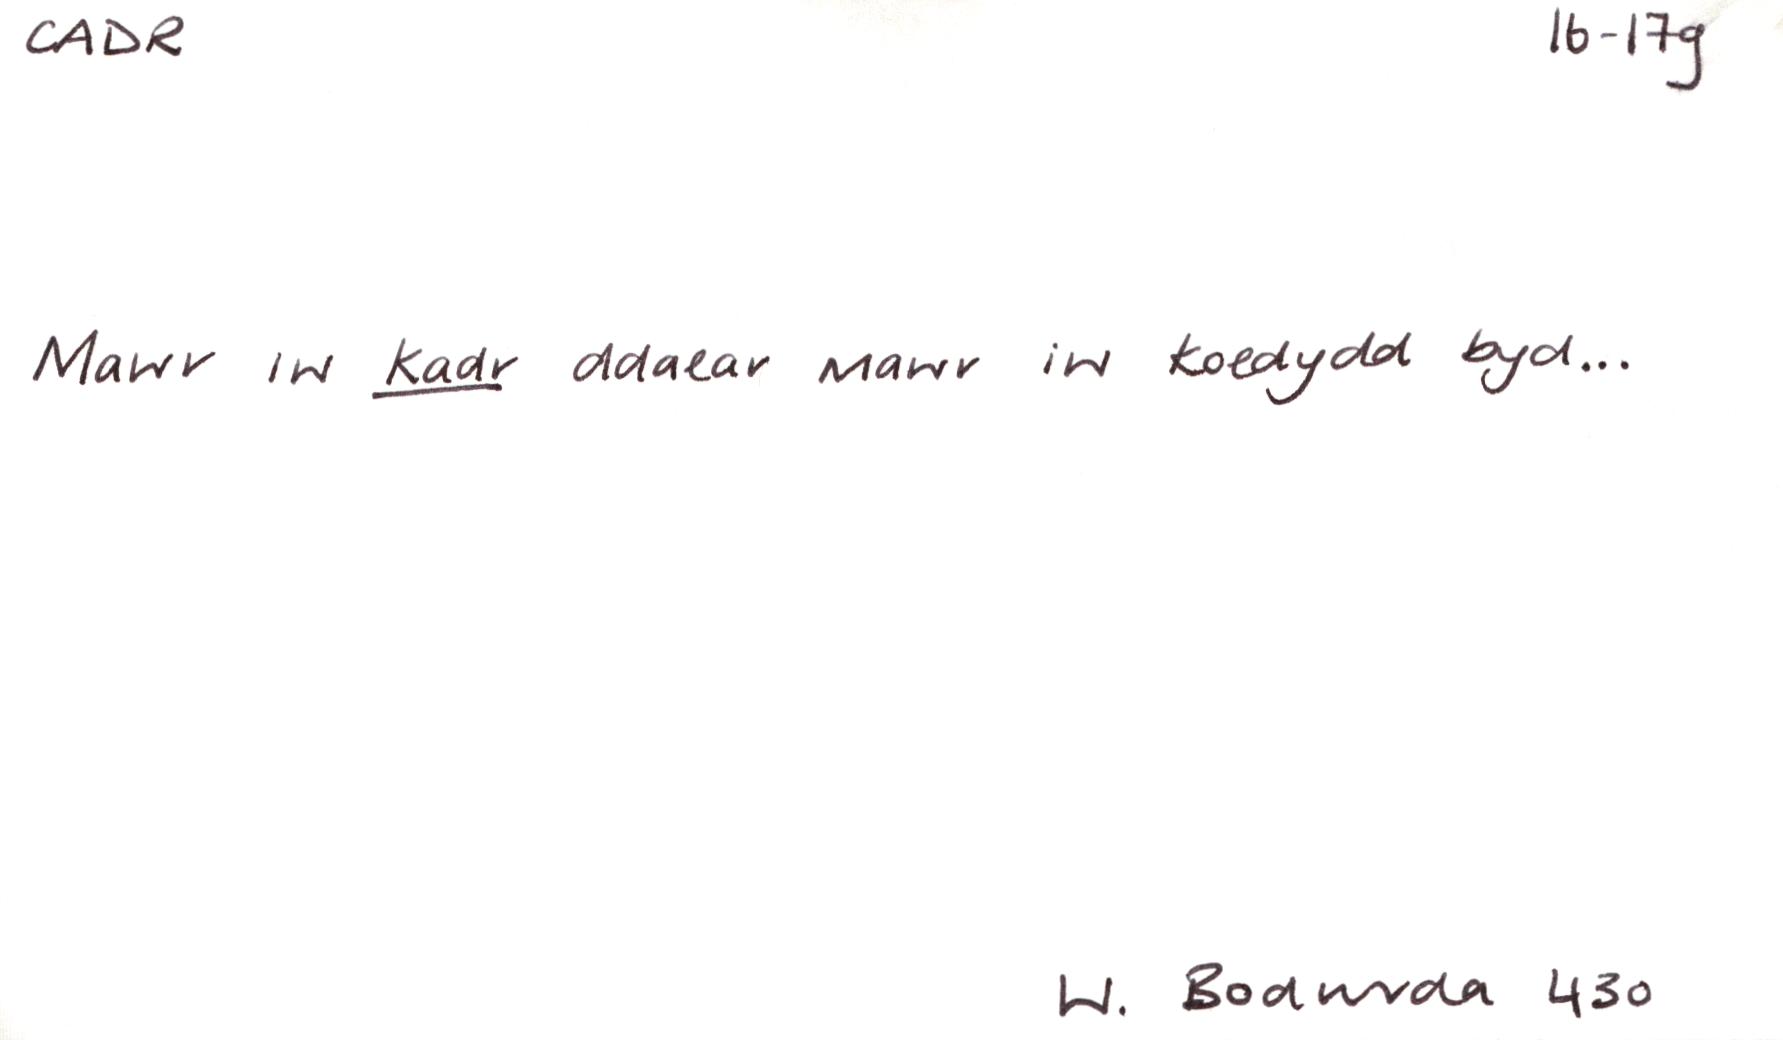 CADR 16-17g
Mawr iw kadr ddaear mawr iw koedydd byd...
W. Bodwrda 430